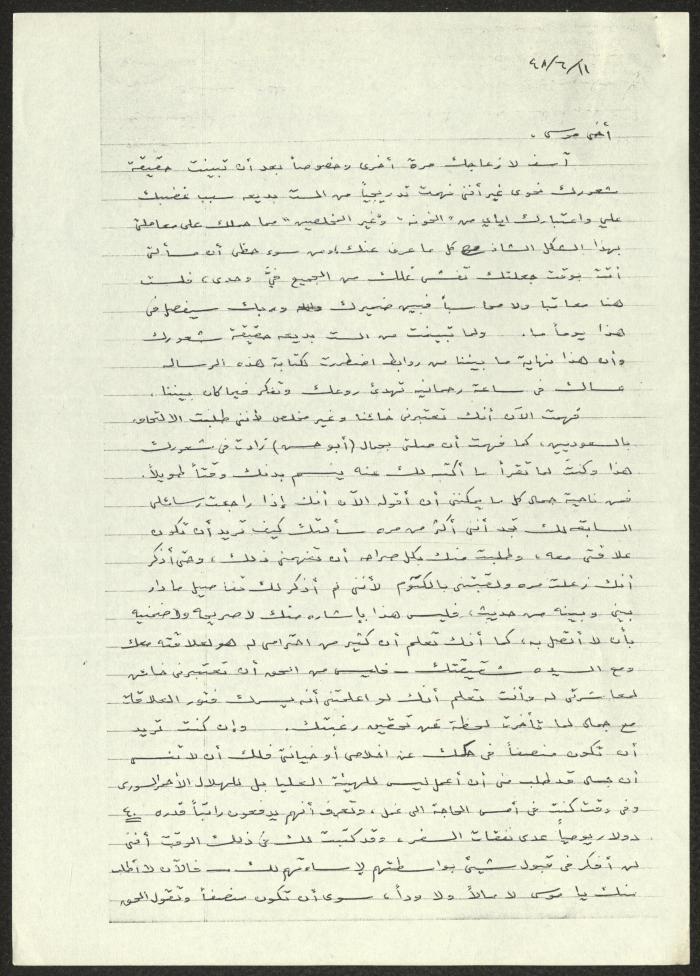 ٤٨/٦/١١
أخي موسى،
آسف لازعاجك مرة أخرى وخصوصاً بعد أن تبينت حقيقة
شعورك نحوي غير أنني فهمت تدريجياً من الست بديعه سبب غضبك
علي واعتبارك اياي من "الخونه" و"غير المخلصين" مما حملك على معاملتي
بهذا الشكل الشاذ كل ما عرف عنك ومن سوء حظي أن مسألتي
أتت بوقت جعلتك تفش غلك من الجميع فيّ وحدي، فلست
هنا معاتبا ولا محاسباً فبين ضميرك وربك سيفصل في
هذا يوماً ما. ولما تبينت من الست بديعه حقيقة شعورك
وأن هذا نهاية ما بيننا من روابط اضطررت لكتابة هذه الرساله
عساك في ساعة رحمانيه تهدئ روعك وتفكر فيما كان بيننا.
فهمت الآن أنك تعتبرني خائنا وغير مخلص لأنني طلبت الالتحاق
بالسعوديين، كما فهمت أن صلتي بجمال (أبو حسن) زادت في شعورك
هذا وكنتُ لما تقرأ ما أكتبه لك عنه ينسم بدنك وقتاً طويلاً.
فمن ناحية جمال كل ما يمكنني أن أقوله الآن أنك إذا راجعت رسائلي
السابقه لك تجد أنني أكثر من مره سألتك كيف تريد أن تكون
علاقتي معه، وطلبت منك بكل صراحه أن تفهمني ذلك، وحتى أذكر
أنك زعلت مره ولقبتني بالكتوم لأنني لم أذكر لك تفاصيل ما دار
بيني وبينه من حديث، فليس هذا بإشاره منك لا صريحة ولا ضمنيه
بأن لا أتصل به، كما أنك تعلم أن كثير من احترامي له هو لعلاقته معك
ومع السيده شقيقتك - فليس من الحق أن تعتبرني خائن
لمعاشرتي له وأنت تعلم أنك لو اعلمتني أنه يسرك فتور العلاقات
مع جمال لما تأخرت لحظة عن تحقيق رغبتك. وإن كنت تريد
أن تكون منصفاً في حكمك عن اخلاصي أو خيانتي فلك أن لا تنسى
أن جمال قد طلب مني أن أعمل ليس للهيئة العليا بل للهلال الأحمر السوري
وفي وقت كنت في أمس الحاجة الى عمل، وتعرف أنهم يدفعون راتباً قدره ٤٠
دولار يومياً عدى نفقات السفر، وقد كتبت لك في ذلك الوقت أنني
لن أفكر في قبول شيئ بواسطتهم لإساءتهم لك - فالآن لا أطلب
منك يا موسى لا مالاً ولا وداً، سوى أن تكون منصفاً وتقول الحق